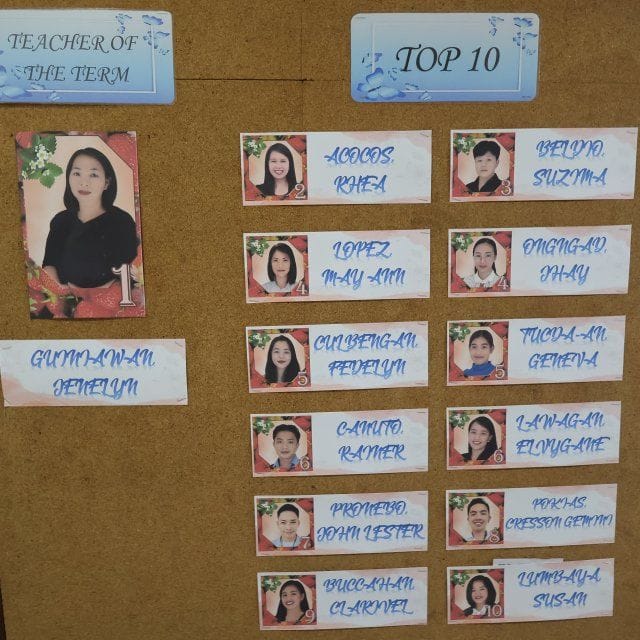 TEACHER OF
THE TERM
TOP 10
1
GUINIAWAN
JENELYN
2
ACOCOS,
RHEA
3
BELDIO,
SUZIMA
4
LOPEZ,
MAY ANN
4
ONGNGAD,
JHAY
5
CULBENGAN,
FEDELYN
5
TUCDA-AN
GENEVA
6
CANUTO,
RAINER
6
LAWAGAN
ELVYGANE
7
PRONEBO,
JOHN LESTER
8
POKIAS,
CRESSON GEMINI
9
BUCCAHAN
CLARIVEL
10
LUMBAYA
SUSAN